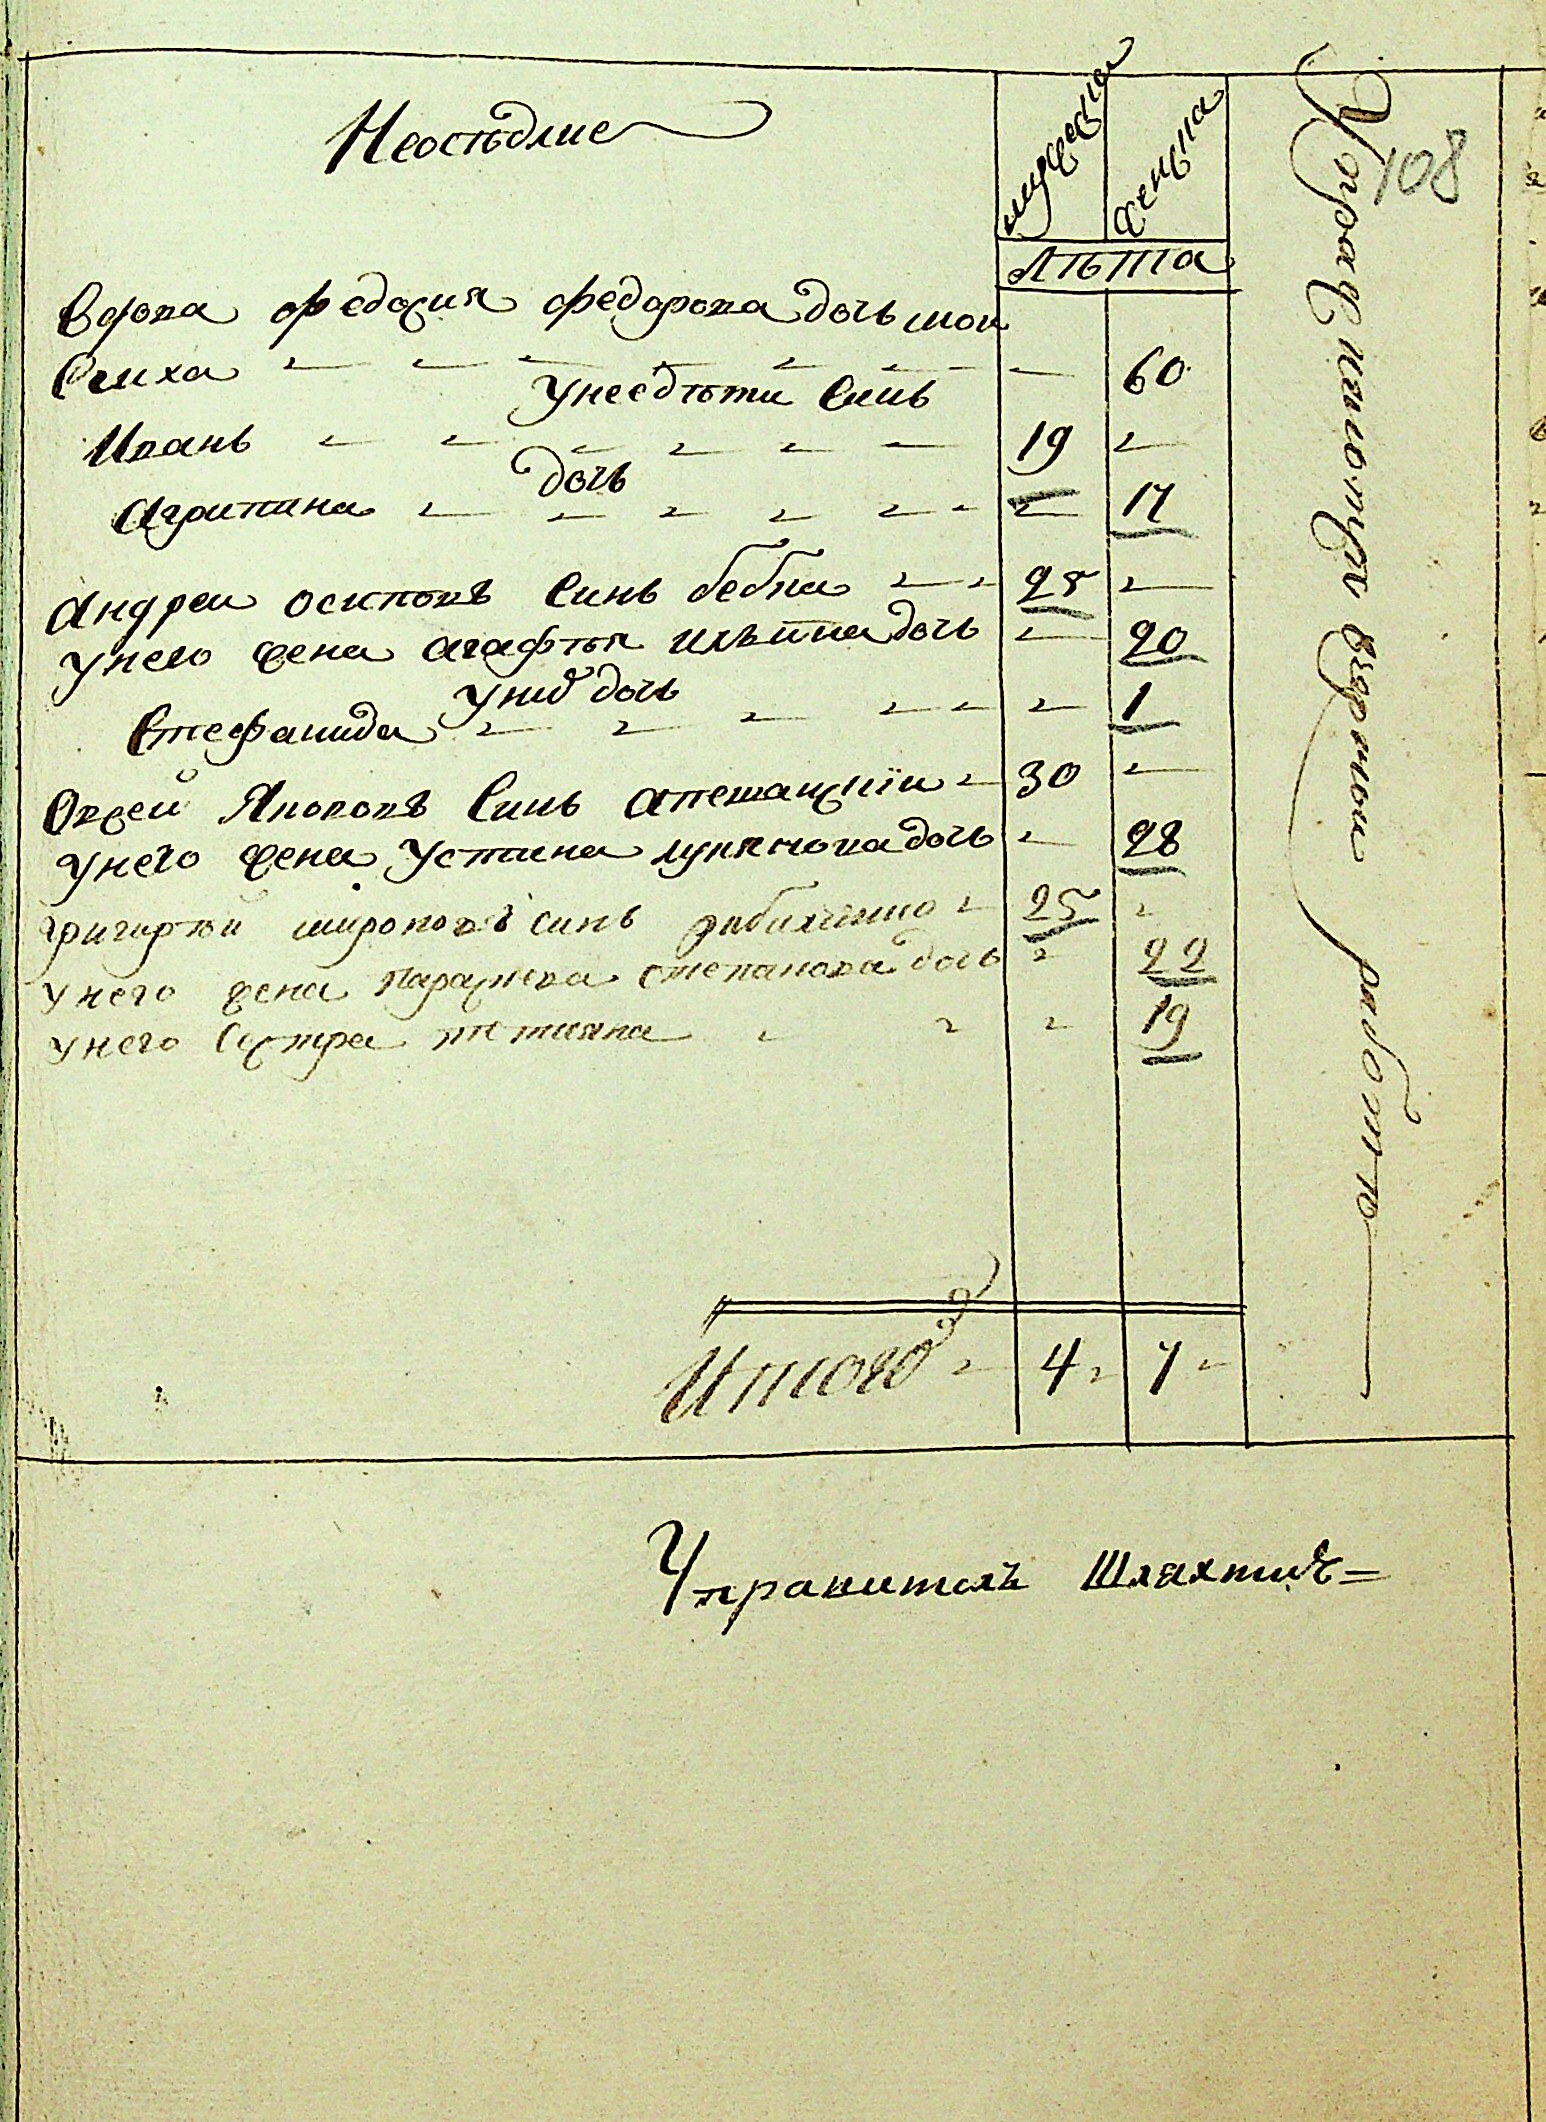 108
Неосѣдлие
мужеска
женска
Лѣта
Вдова федосия федорова дочь мои
сеиха 60
Унее дѣти Синъ
Иванъ 19
дочь
Агрипина 17
Андреи осиповъ Синъ бебка 25
Унего жена агафѣя илѣина дочь 20
Унихъ дочь
Стефанида 1
Овсеи Яковов Синъ 30
Унего жена Устина лукянова дочь 28
григорѣй мироновъ синъ 25
Унего жена Параскева степанова дочь 22
Унего Сестра тетияна 19
Итого 4 7
работѣ
Управитель Шляхтичъ